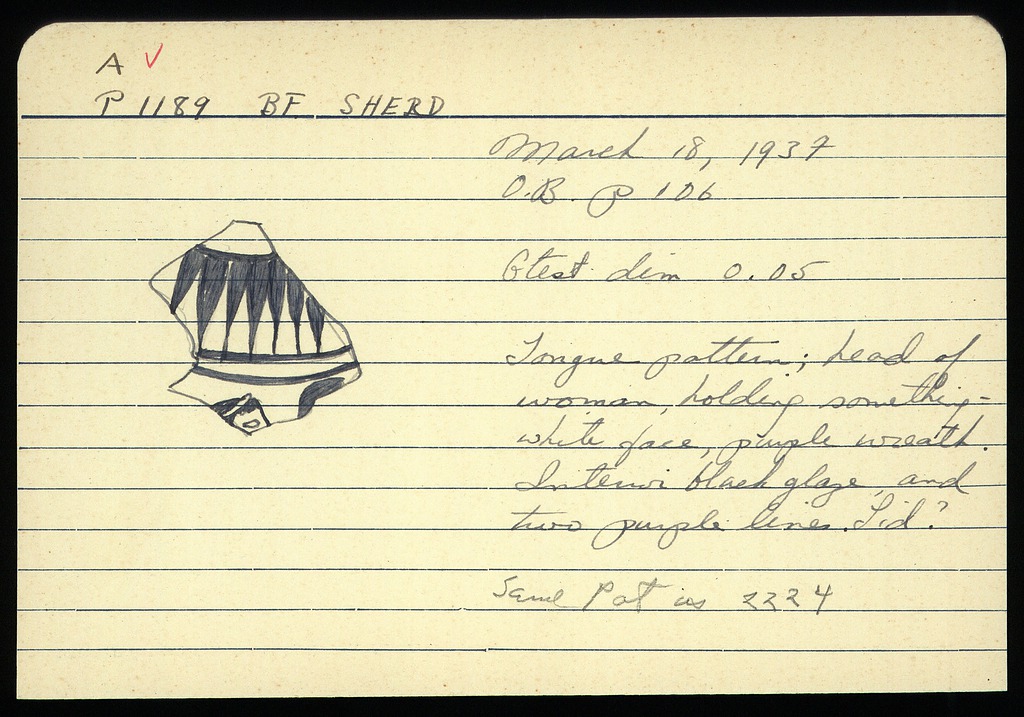 A ✓
P 1189 BF SHERD
March 18, 1937
O.B. p 106
Gtest dim 0.05
Tongue pattern; head of
woman, holding something-
white face, purple wreath.
Interior black glaze, and
two purple lines. Lid?
Same Pot as 2224